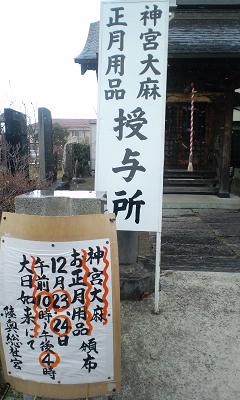 神宮大麻
正月用品
授与所
神宮大麻
お正月用品 頒布
12月23、24日
午前10時~午後4時
大日如来にて
陸奥総社宮